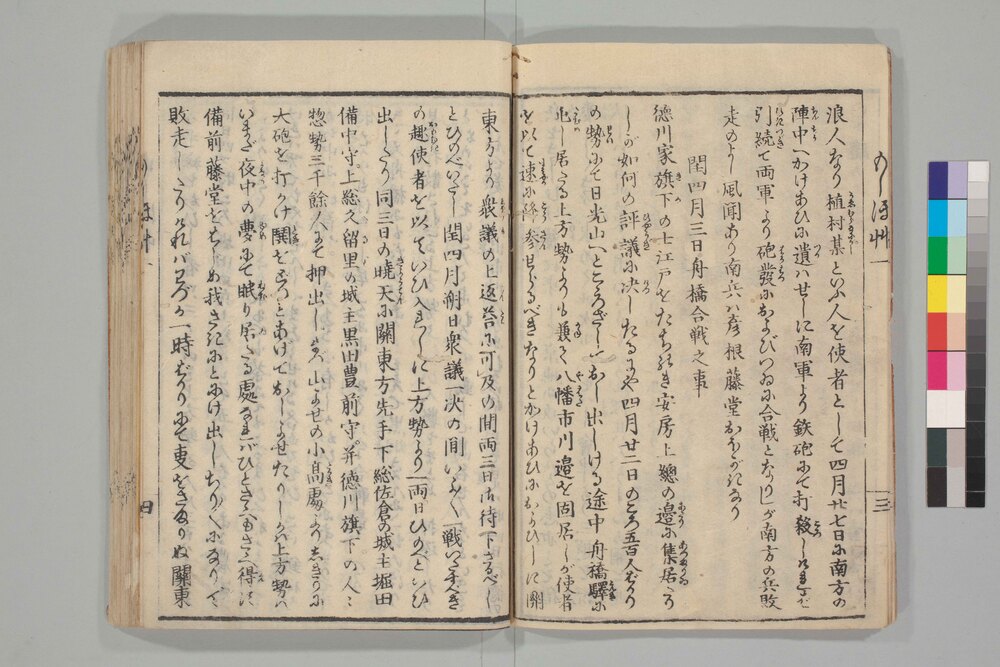 浪人なり植村某といふ人を使者として四月廿七日に南方の
陣中へかけあひに遣ハせしに南軍より鉄砲にて打殺しければ
引続て両軍より砲發におよびつゐに合戦となり南方の兵敗
走のよし風聞あり南兵ハ彦根藤堂おほがきなり
閏四月三日舟橋合戦之事
徳川家旗下の士江戸をたちのき安房上總の邉に集居たり
しが如何の評議に决したるにや四月廿二日のころ五百人ばかり
の勢にて日光山へところざしおし出しける途中舟橋驛に
屯し居たる上方勢よりも八幡市川邉を固居しが使者
を以て速に降参せらるべきなりとかけあひにおよびしに関
東方より衆議の上返答に可及の間両三日御待下さるべし
とひのべいたし閏四月朔日衆議一决の間いよ〳〵一戦いたすべき
の趣使者を以ていひ入れしに上方勢より一両日ひのべといひ
出したり同三日の暁天に關東方先手下総佐倉の城主堀田
備中守。上総久留里の城主黒田豊前守。并徳川旗下の人々
惣勢三千餘人にて押出し山よせの小髙處よりしきりに
大砲を打かけ鬨をどつとあげておしよせたりしかバ上方勢ハ
いまだ夜中の夢にて眠り居たる處なれバひとさゝへもさゝへ得ず
備前藤堂をはじめ我さきにとにげ出しちり〳〵になりて
敗走したりけれバわづか一時ばかりにて事をさまりぬ關東
三
四